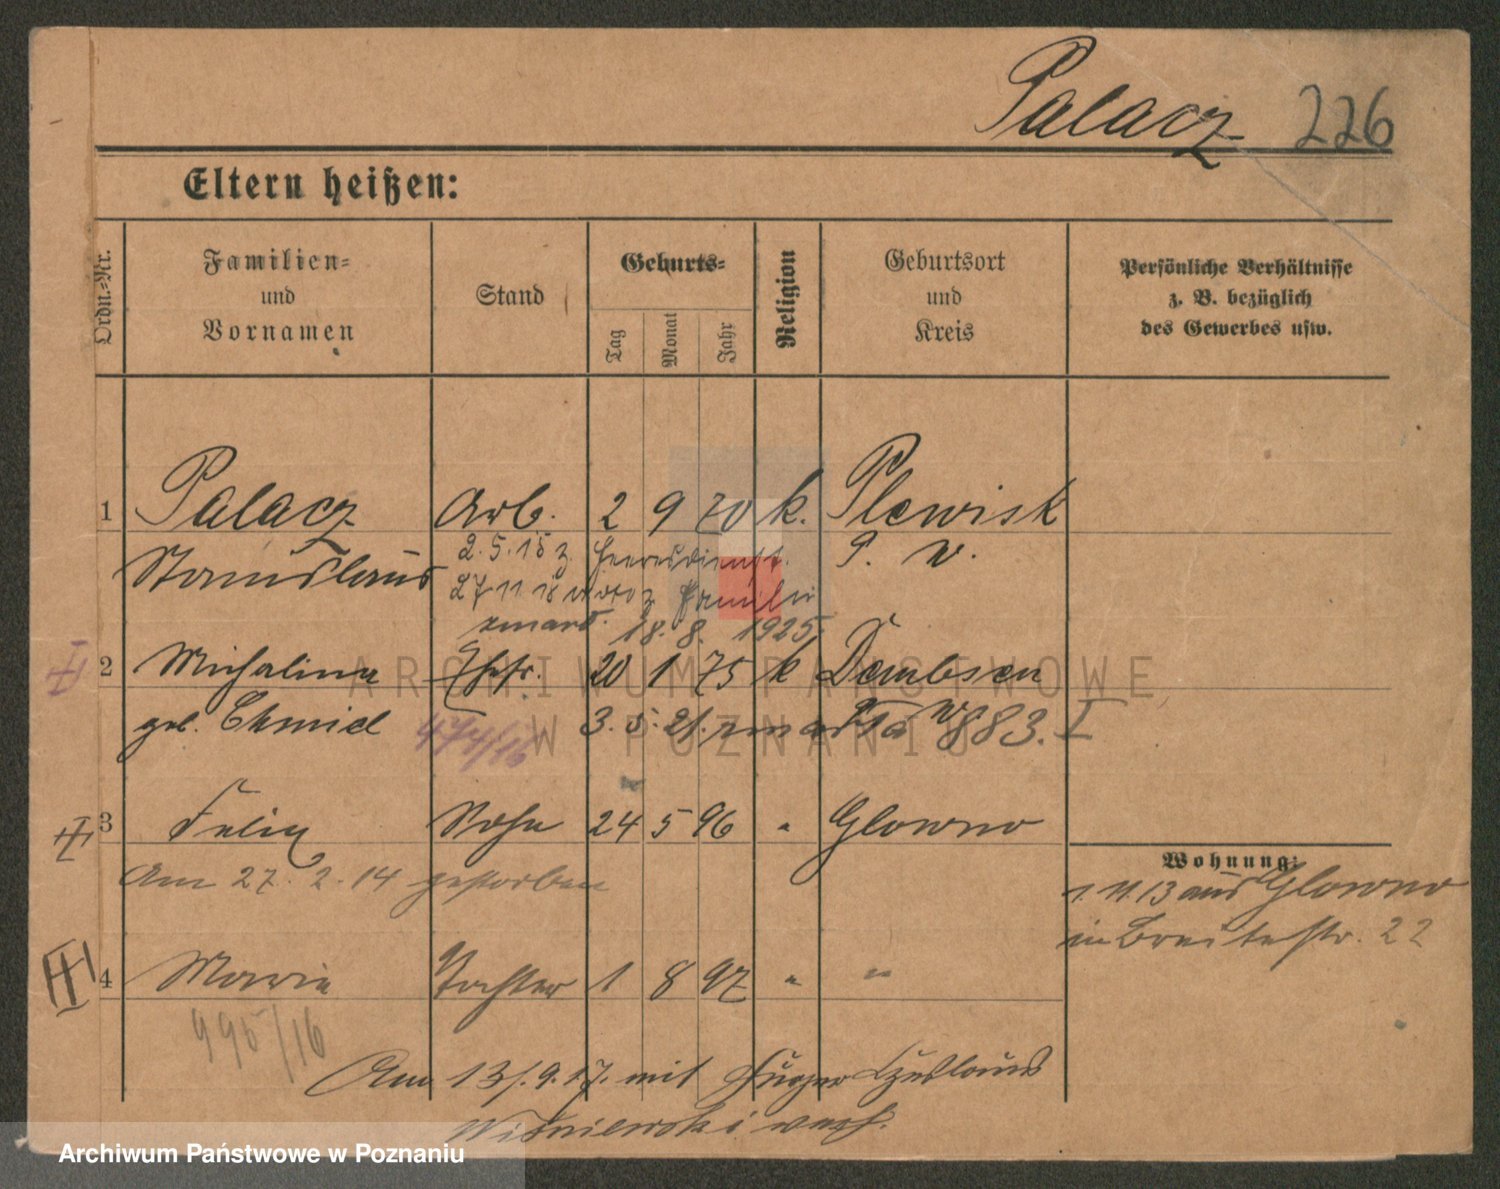 Palacz 226
Eltern heißen:
Ordn.-Nr.
Familien-
und
Vornamen
Stand
Geburts-
Tag
Monat
Jahr
Religion
Geburtsort
und
Kreis
Persönliche Verhältnisse
z. B. bezüglich
des Gewerbes usw.
1 Palacz Arb. 2 9 70 k. Plewisk
Stanislaus P. W.
2.5.15 z. Heeresdienst.
27 11 18 z Familie
18. 8. 1925
2 Michalina Ehefr. 20 1 75 k Dembsen
geb. Chmiel 3. 5. 21. 883. I
474/16
3 Felix Sohn 24 5 96 " Glowno
Am 27. 2. 14 gestorben
Wohnung:
1. 11. 13 aus Glowno
in Breitestr. 22
4 Marie Tochter 1 8 97 " "
995/16
Am 13/.9.17. mit Czeslaus
Wisniewski verh.
ARCHIWUM PAŃSTWOWE
W POZNANIU
Archiwum Państwowe w Poznaniu